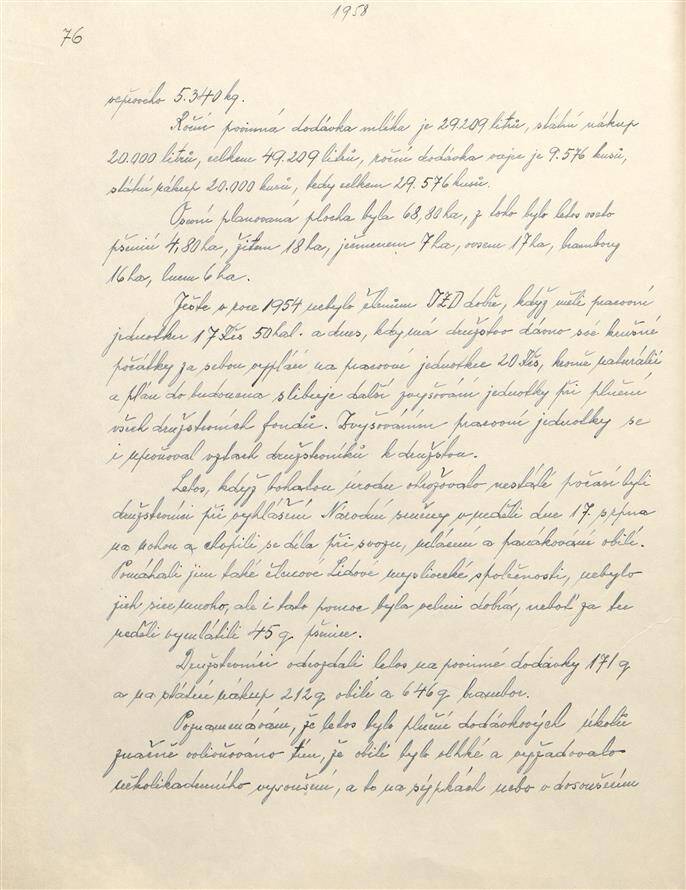 1958
76
vepřového 5.340 kg.
Roční povinná dodávka mléka je 29.209 litrů, státní nákup
20.000 litrů, celkem 49.209 litrů, roční dodávka vajec je 9.576 kusů,
státní nákup 20.000 kusů, tedy celkem 29.576 kusů.
Osevní planovaná plocha byla 68,80 ha, z toho bylo letos oseto
pšenicí 4,80 ha, žitem 18 ha, ječmenem 7 ha, ovsem 17 ha, brambory
16 ha, lnem 6 ha.
Ješte v roce 1954 nebylo členům JZD dobře, když měli pracovní
jednotku 17 Kčs 50 hal. a dnes, kdy má družstvo dávno své krušné
počátky za sebou vyplácí na pracovní jednotce 20 Kčs, kromě naturálií
a plán do budoucna slibuje další zvyšování jednotky při plnění
všech družstevních fondů. Zvyšováním pracovní jednotky se
i upevňoval vztah družstevníků k družstvu.
Letos, když bohatou úrodu ohrožovalo nestálé počasí byli
družstevníci při vyhlášení Národní směny v neděli dne 17. srpna
na nohou a chopili se díla při svozu, mlácení a panákování obilí.
Pomáhali jim také členové Lidové myslivecké společnosti, nebylo
jich sice mnoho, ale i tato pomoc byla velmi dobrá, neboť za tu
neděli vymlátili 45 q pšenice.
Družstevníci odevzdali letos na povinné dodávky 171 q
a na státní nákup 212 q obilí a 646 q brambor.
Poznamenávám, že letos bylo plnění dodávkových úkolů
značně ovlivňováno tím, že obilí bylo vlhké a vyžadovalo
několikadenního vysoušení, a to na sýpkách nebo v dosoušecím